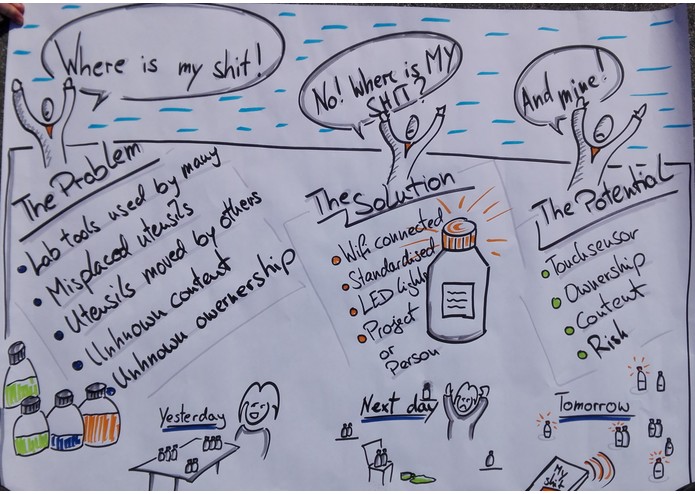 Where is my shit!
No! Where is MY
SHIT?
And mine!
The Problem
Lab tools used by many
Misplaced utensils
Utensils moved by others
Unknown content
Unknown owernership
The Solution
Wifi connected
Standardised
LED lights
Project
or
Person
The Potential
Touchsensor
Ownership
Content
Risk
Yesterday
Next day
Tomorrow
My
shit